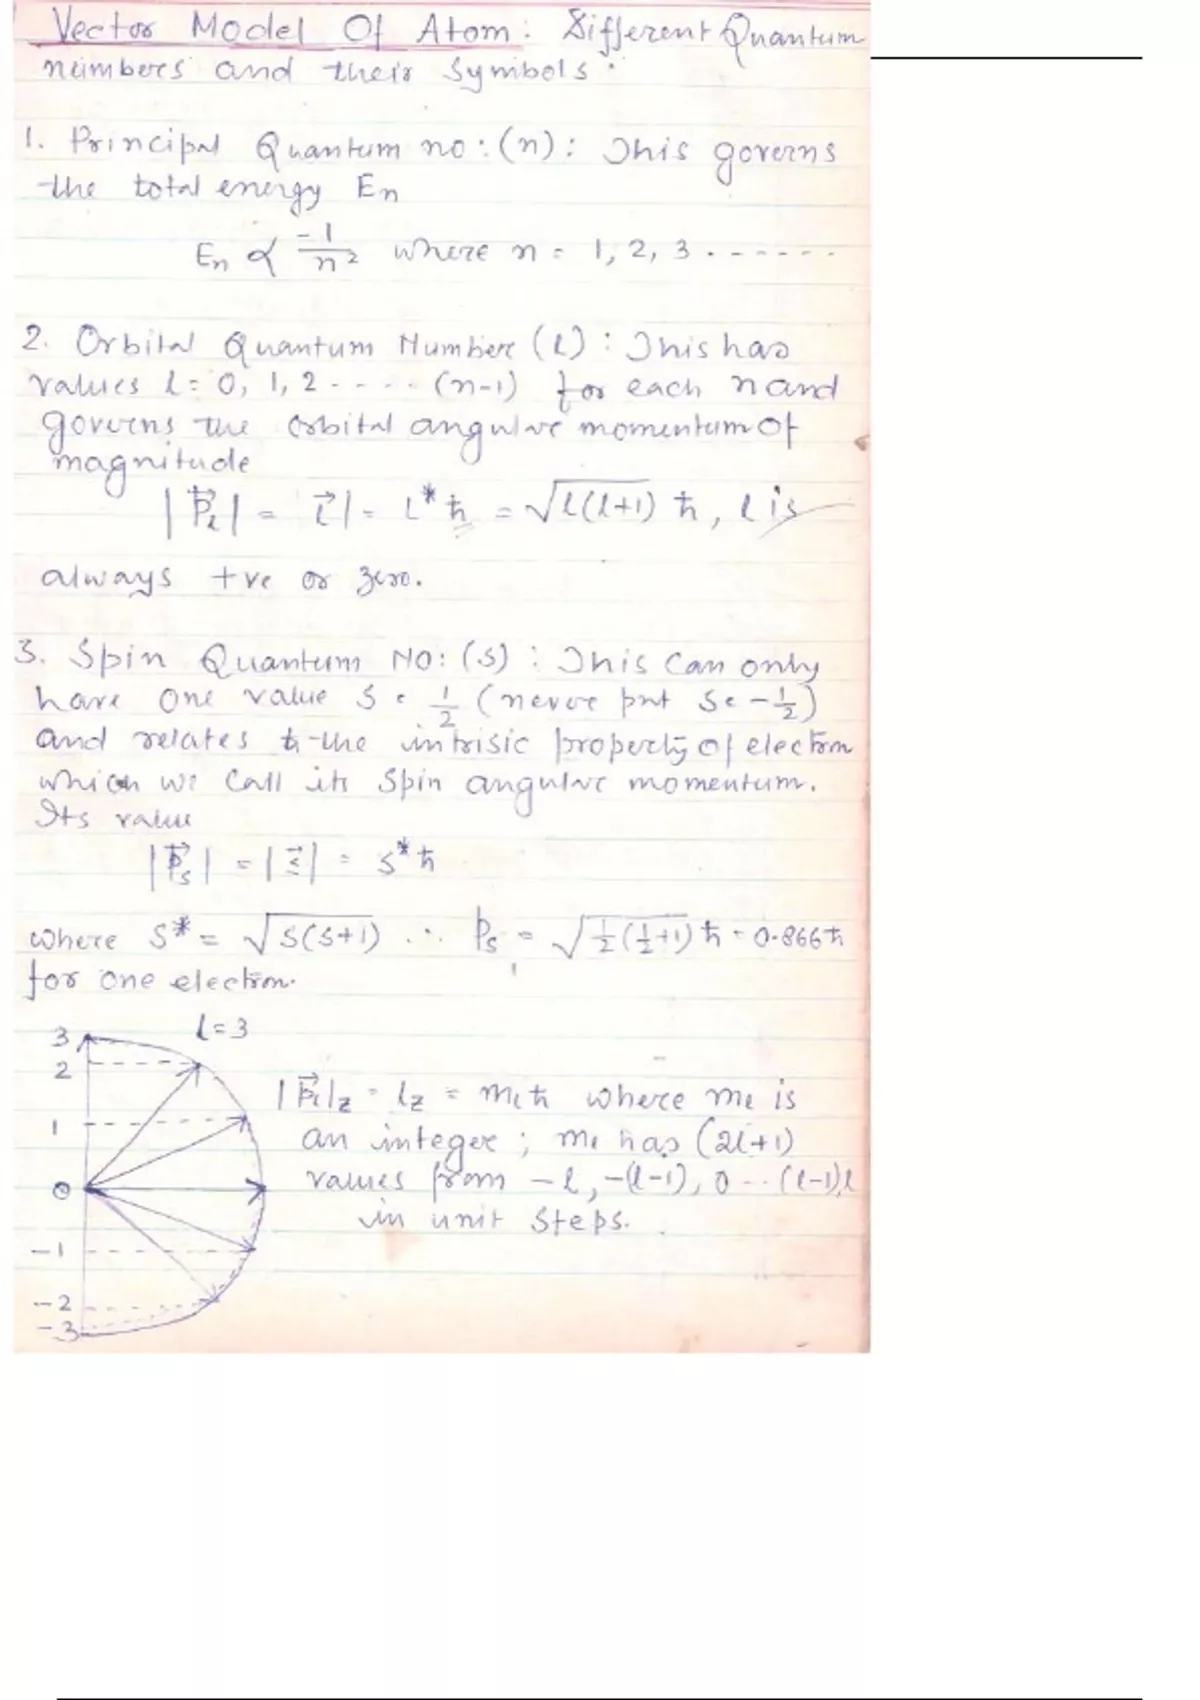 Vector Model Of Atom: Different Quantum
numbers and their Symbols.
1. Principal Quantum no: (n): This governs
the total energy En
En ∝ -1/n² where n = 1, 2, 3 . - - - - - -
2. Orbital Quantum Number (l): This has
values l = 0, 1, 2 - - - - (n-1) for each n and
governs the orbital angular momentum of
magnitude
|P⃗l| = l⃗| = l*ħ = √l(l+1) ħ, l is
always +ve or zero.
3. Spin Quantum NO: (S): This can only
have one value S = 1/2 (never put S = -1/2)
and relates to the intrisic property of electron
which we call its Spin angular momentum.
Its value
|P⃗s| = |s⃗| = s*ħ
where S* = √S(S+1) ∴ Ps = √1/2(1/2+1) ħ = 0.866ħ
for one electron.
l = 3
3
2
1
0
-1
-2
-3
|P⃗l|z = lz = mlħ where ml is
an integer; ml has (2l+1)
values from -l, -(l-1), 0 -- (l-1), l
in unit steps.